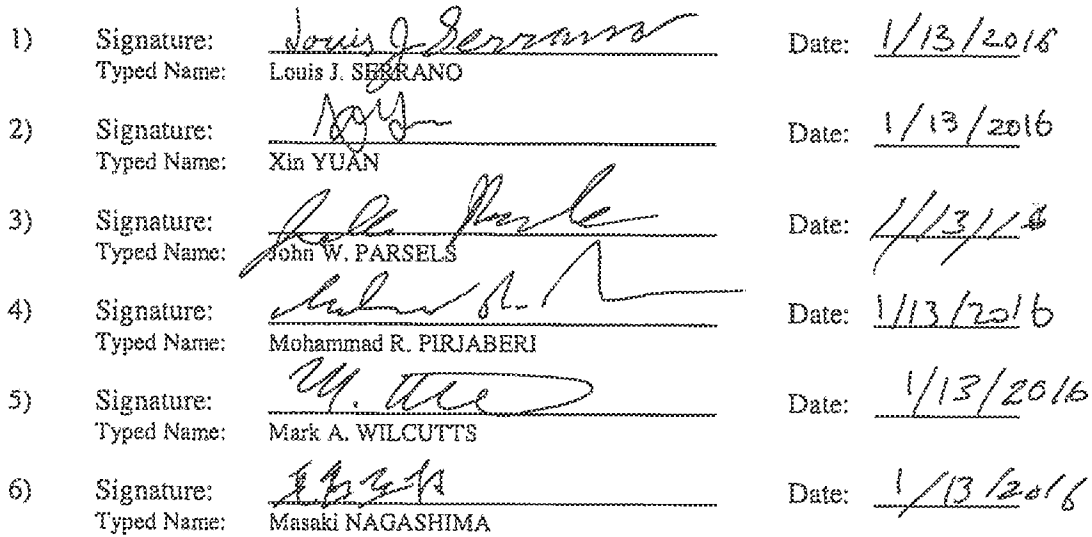 1) Signature: Louis J Serrano Date: 1/13/2016
Typed Name: Louis J. SERRANO
2) Signature: Date: 1/13/2016
Typed Name: Xin YUAN
3) Signature: Date: 1/13/16
Typed Name: John W. PARSELS
4) Signature: Date: 1/13/2016
Typed Name: Mohammad R. PIRJABERI
5) Signature: Date: 1/13/2016
Typed Name: Mark A. WILCUTTS
6) Signature: Date: 1/13/2016
Typed Name: Masaki NAGASHIMA